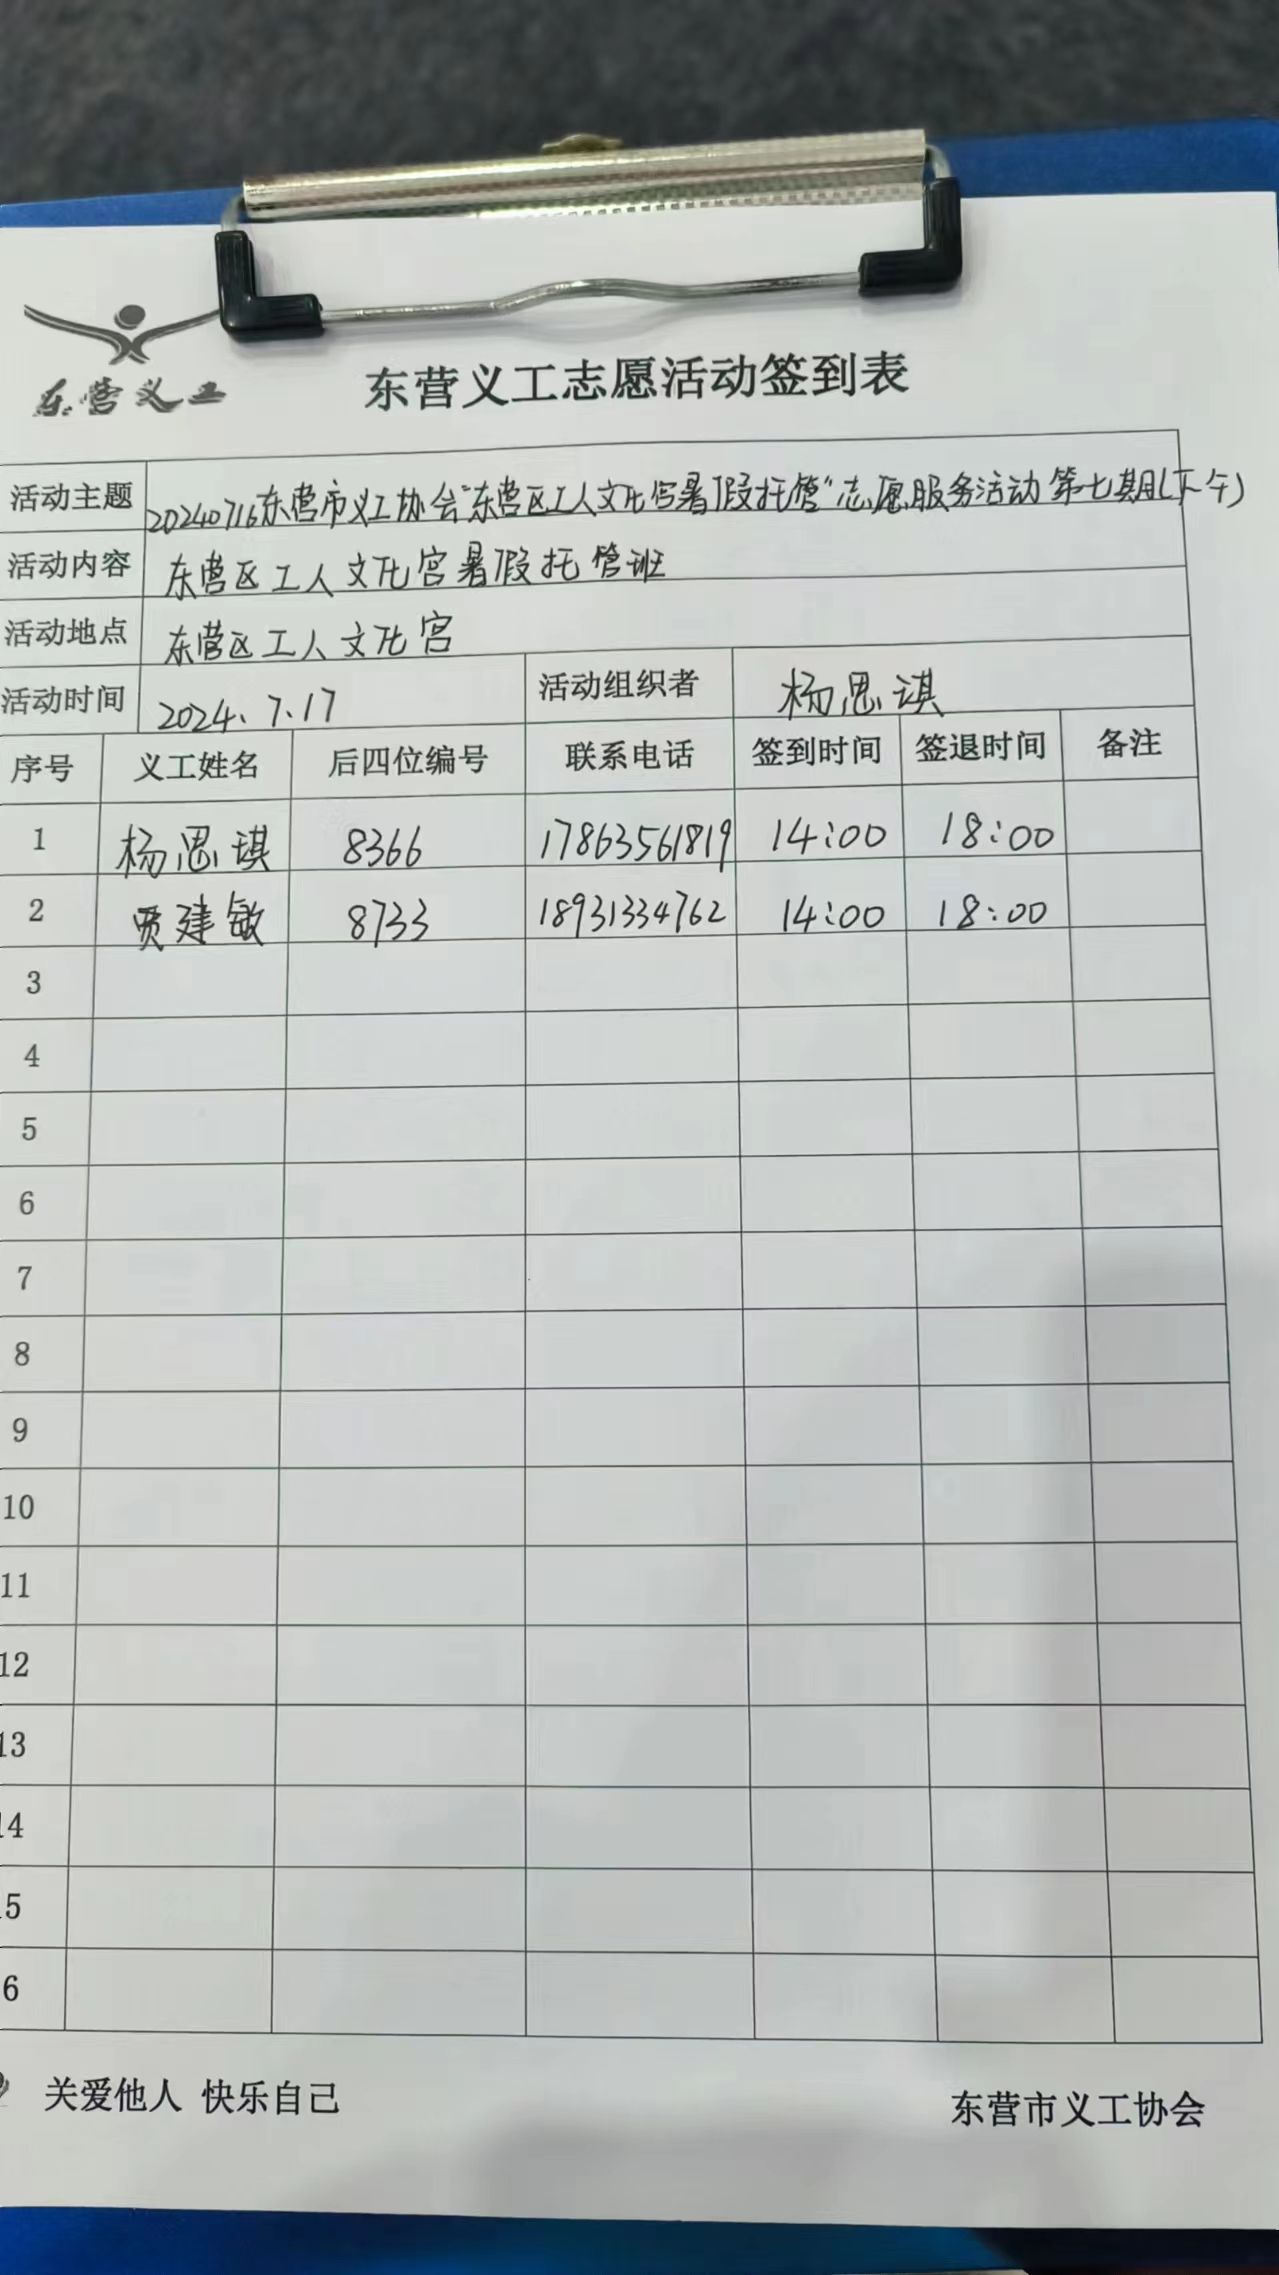 东营义工
东营义工志愿活动签到表
活动主题 20240716东营市义工协会"东营区工人文化宫暑假托管"志愿服务活动第七期(下午)
活动内容 东营区工人文化宫暑假托管班
活动地点 东营区工人文化宫
活动时间 2024.7.17 活动组织者 杨思琪
序号 义工姓名 后四位编号 联系电话 签到时间 签退时间 备注
1 杨思琪 8366 17863561819 14:00 18:00
2 贾建敏 8733 18931334762 14:00 18:00
3
4
5
6
7
8
9
10
11
12
13
14
15
6
关爱他人 快乐自己 东营市义工协会